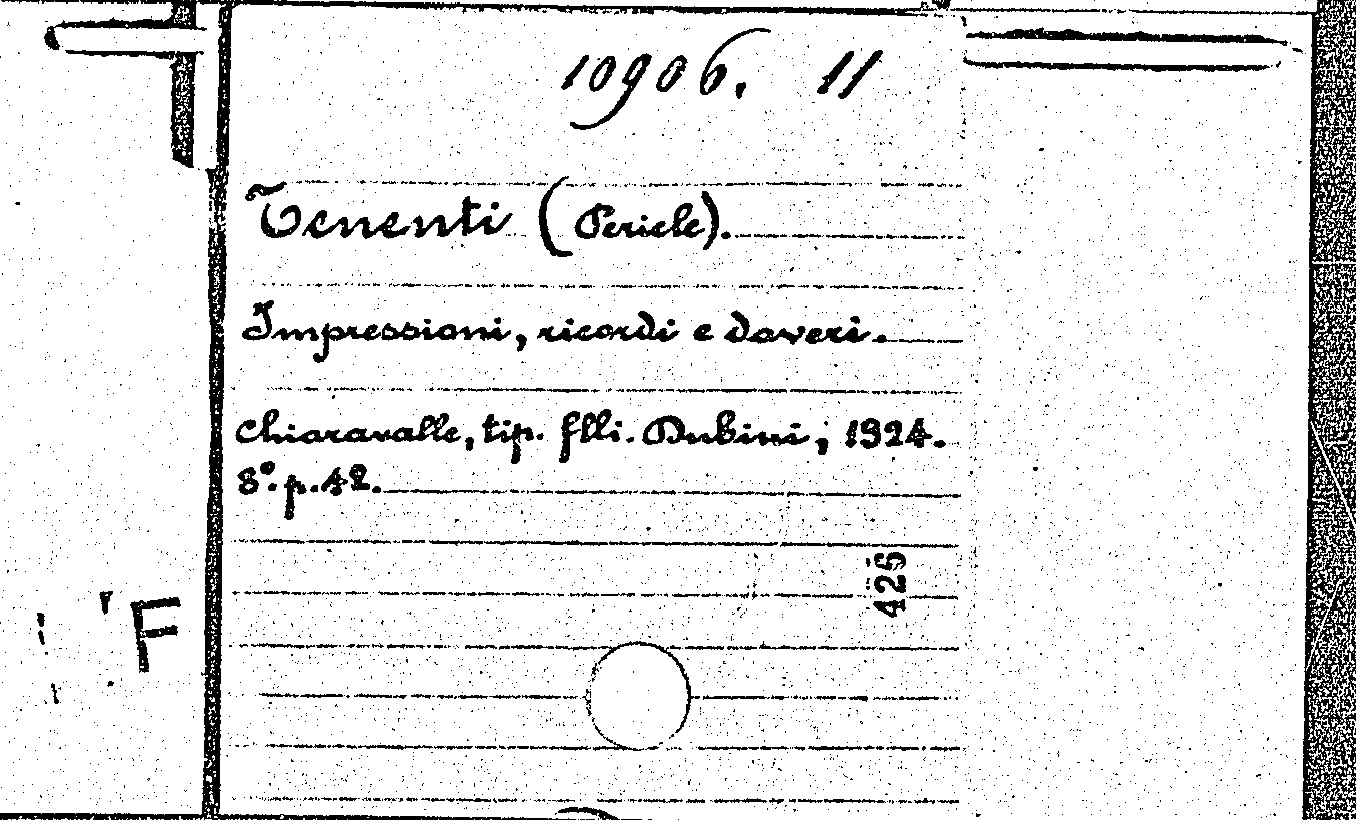 10906. 11
Tenenti (Pericle).
Impressioni, ricordi e doveri.
Chiaravalle, tip. flli. Dubini, 1924.
8º. p. 42.
425
F